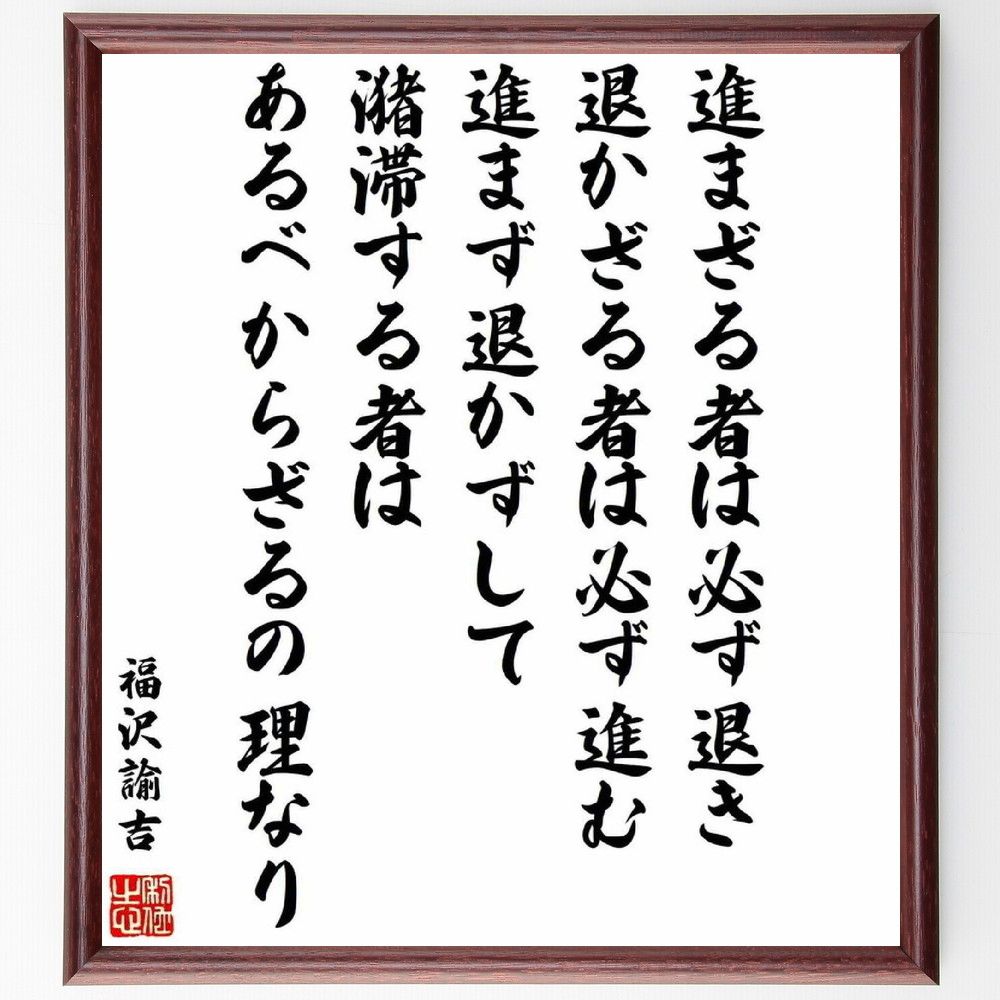 進まざる者は必ず退き
退かざる者は必ず進む
進まず退かずして
瀦滞する者は
あるべからざるの理なり
福沢諭吉